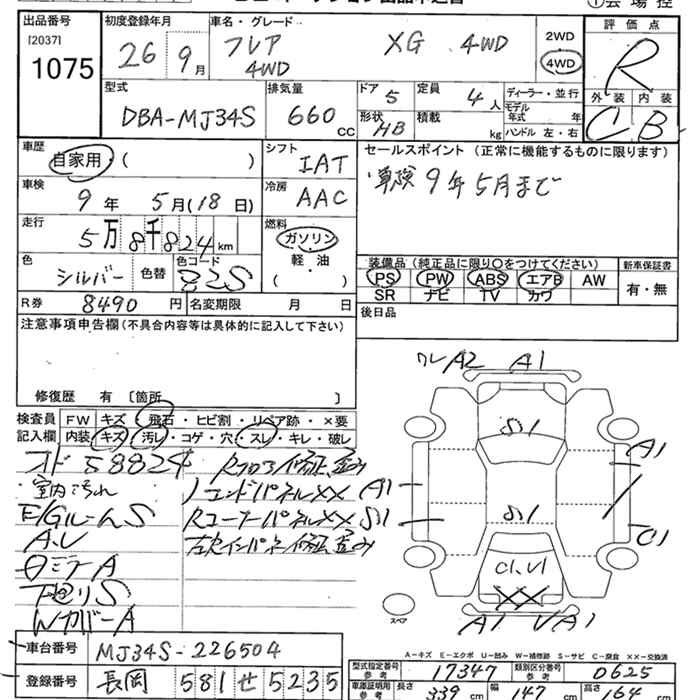 出品番号 初度登録年月 車名・グレード 評価点
[2037]
1075
26年 9月 フレア XG 4WD 2WD
4WD 4WD R
型式 排気量 ドア 5 定員 4人 ディーラー・並行 外装 内装
DBA-MJ34S 660cc 形状 HB 積載 kg モデル年式 年 C B
ハンドル 左・右
車歴 自家用・( ) シフト IAT セールスポイント (正常に機能するものに限ります)
車検 9年 5月(18日) 冷房 AAC 車検9年5月まで
走行 5万8千824km 燃料 ガソリン・軽・油 ( )
色 シルバー 色替 色コード Z2S
装備品 (純正品に限り○をつけてください) 新車保証書
PS PW ABS エアB AW 有・無
SR ナビ TV カワ
R券 8490円 名変期限 月 日 後日品
注意事項申告欄(不具合内容等は具体的に記入して下さい)
修復歴 有 〔箇所 〕
検査員 FW キズ・飛石・ヒビ割・リペア跡・×要
記入欄 内装 キズ・汚レ・コゲ・穴・スレ・キレ・破レ
オド58824
室内汚れ
E/GルームS
下廻りS
WカバーA
Rフロア修正、歪み
RコーナーパネルXX
A2 A1
S1
A1
A1
S1 S1
C1
C1.U1
XX
A1 A1
スペア
A-キズ E-エクボ U-凹み W-補修跡 S-サビ C-腐食 XX-交換済
車台番号 MJ34S-226504
登録番号 長岡 581 せ 5235
型式指定番号 参考 17347 類別区分番号 参考 0625
車庫証明用 参考 長さ 339cm 幅 147cm 高さ 164cm